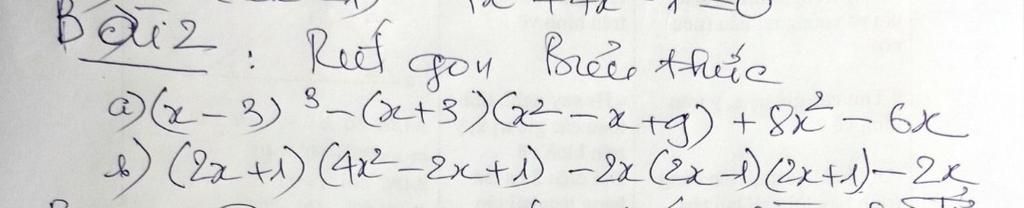 Bài 2 : Rút gọn Biểu thức
a) (x - 3)³ - (x + 3)(x² - x + 9) + 8x² - 6x
b) (2x + 1)(4x² - 2x + 1) - 2x(2x - 1)(2x + 1) - 2x